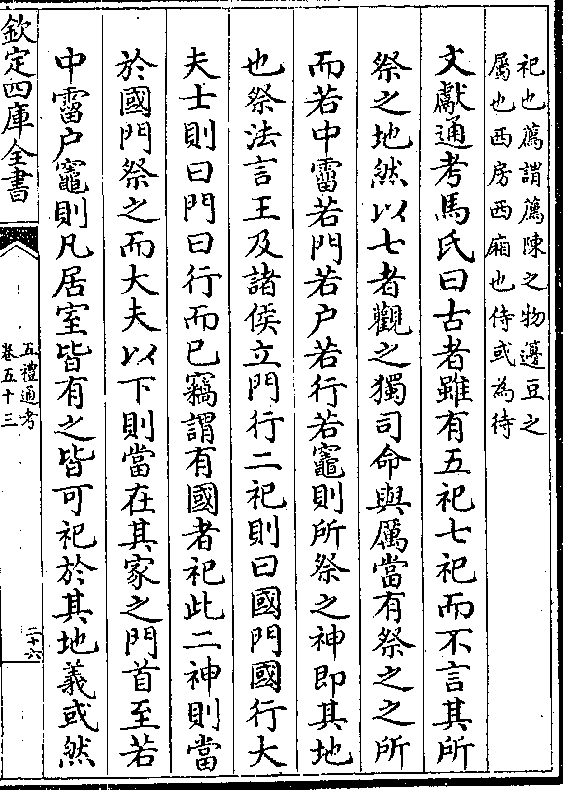 祀也薦謂薦陳之物籩豆之
屬也西房西廂也侍或為待
文獻通考馬氏曰古者雖有五祀七祀而不言其所
祭之地然以七者觀之獨司命與厲當有祭之之所
而若中霤若門若户若行若竈則所祭之神即其地
也祭法言王及諸侯立門行二祀則曰國門國行大
夫士則曰門曰行而已竊謂有國者祀此二神則當
於國門祭之而大夫以下則當在其家之門首至若
中霤户竈則凡居室皆有之皆可祀於其地義或然
欽定四庫全書
五禮通考
卷五十三
二十六